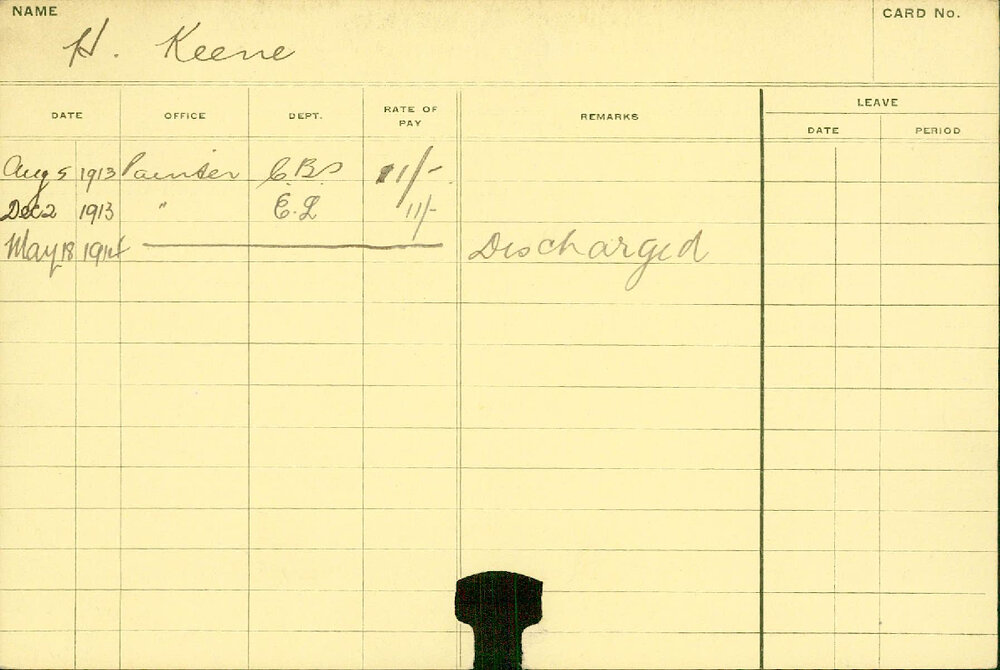 NAME
CARD No.
H. Keene
LEAVE
DATE OFFICE DEPT. RATE OF PAY REMARKS DATE PERIOD
Aug 5 1913 Painter C.B.S 11/-
Dec 2 1913 " E.L 11/-
May 18 1914 Discharged